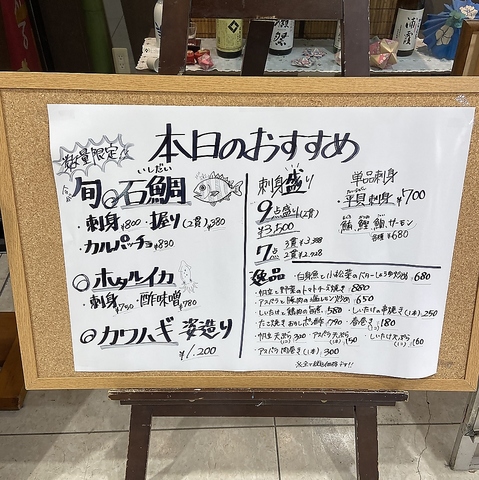 本日のおすすめ
数量限定
いしだい
旬の石鯛
・刺身 ¥800 ・握り(2貫) 380
・カルパッチョ ¥830
◎ホタルイカ
・刺身 ¥750 ・酢味噌 ¥780
◎カワハギ 姿造り
¥1.200
刺身盛り
9点盛り(2貫)
¥3,500
7点
単品刺身
・平貝刺身 ¥700
鯛 サーモン
各種 ¥680
逸品
・白身魚と小松菜のバターしょうゆ炒め 680
・帆立と野菜のトマトチーズ焼き 880
・アスパラと豚肉の塩レモン炒め 650
・しいたけと鶏肉の旨煮 580 ・しいたけの串焼き(1本) 250
・たこ焼き おろしポン酢 790 ・春巻き(1コ) 180
・帆立天ぷら(1コ) 300 ・アスパラ天ぷら(1本) 150 ・しいたけ天ぷら(1コ) 160
・アスパラ肉巻き(1本) 300
※全て税込価格です!!